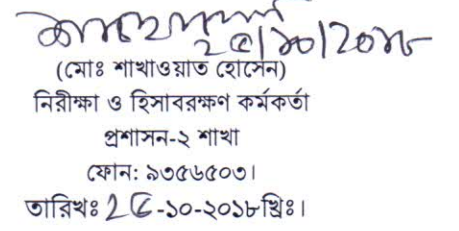 ২৫/১০/২০১৮
(মোঃ শাখাওয়াত হোসেন)
নিরীক্ষা ও হিসাবরক্ষণ কর্মকর্তা
প্রশাসন-২ শাখা
ফোন: ৯৩৫৬৫০৩।
তারিখঃ ২৫-১০-২০১৮খ্রিঃ।